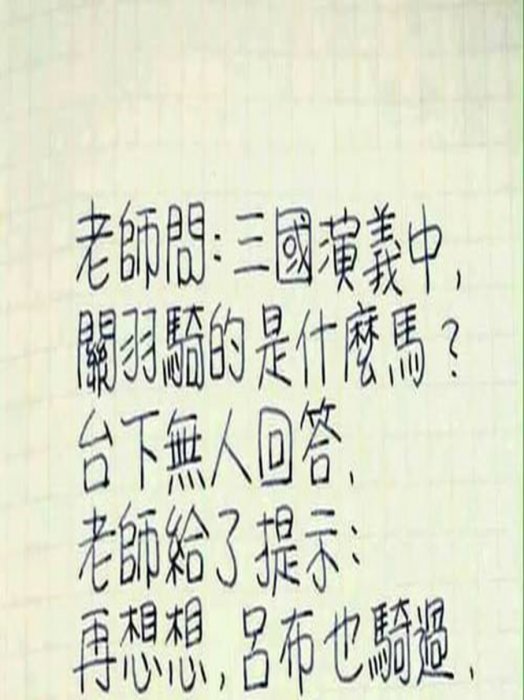 老師問:三國演義中,
關羽騎的是什麼馬?
台下無人回答,
老師給了提示:
再想想,呂布也騎過,